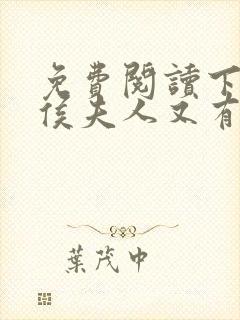 免費閱讀下
侯夫人又有
葉茂中